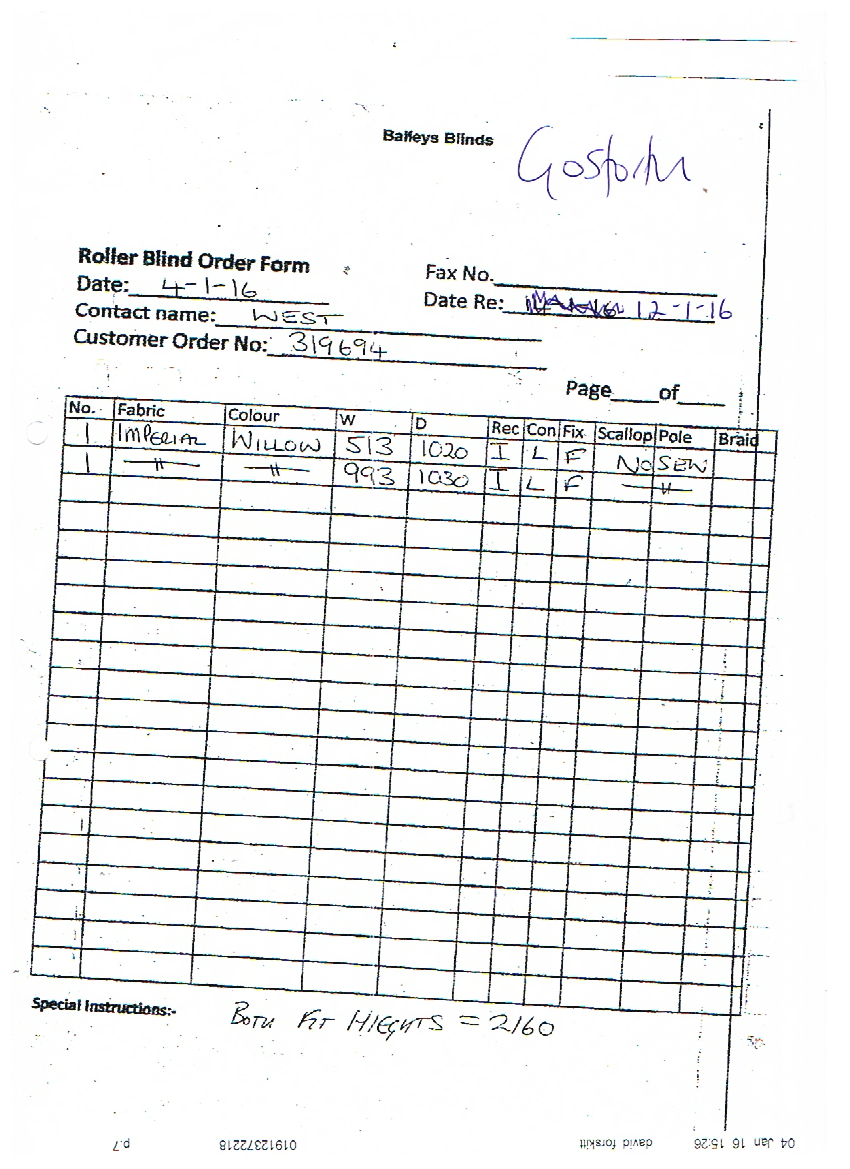 Baileys Blinds
Gosforth
Roller Blind Order Form
Fax No.
Date: 4-1-16
Date Re: 12-1-16
Contact name: WEST
Customer Order No: 319694
Page of
No. Fabric Colour W D Rec Con Fix Scallop Pole Braid
1 IMPERIAL WILLOW 513 1020 I L F NO SEW
1 –"– –"– 993 1030 I L F –"–
Special Instructions:- BOTH FIT HIEGHTS = 2160
04 Jan 16 15:26 david forskitt 01912372218 p.7